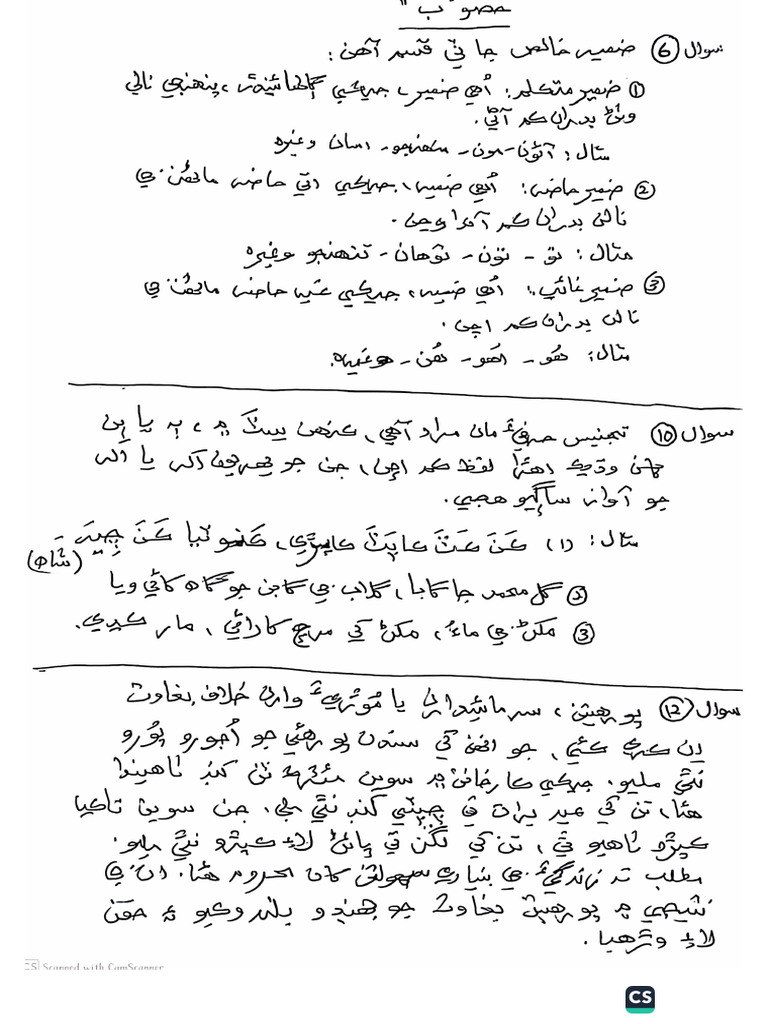 حصو "ب"
سوال 6 ضمير خالص جا ٽي قسم آهن:
① ضمير متڪلم: اُهي ضمير، جيڪي ڳالهائيندڙ، پنهنجي نالي
وٺڻ بدران ڪم آڻي.
مثال: آئون - مون - منهنجو - اسان وغيره
② ضمير حاضر: اُهي ضمير، جيڪي اتي حاضر ماڻهن جي
نالن بدران ڪم آندا وڃن.
مثال: تو - تون - توهان - تنهنجو وغيره
③ ضمير غائب: اُهي ضمير، جيڪي غير حاضر ماڻهن جي
نالن بدران ڪم اچن.
مثال: هُو - اهو - هُن - وغيره.
سوال 10 تجنيس حرفيءَ مان مراد آهي، ڪنهن بيت ۾، ٻه يا ٻن
کان وڌيڪ اهڙا لفظ ڪم اچن، جن جو پهريون اکر يا
جو آواز ساڳيو هجي.
مثال: (1)
(شاهه)
② گل محمد جا گابا، گلاب جي گابن جو گاهه کائي ويا
③ مکڻ جي ماءُ، مکڻ کي مرچ کارائي، مار ڪڍي.
سوال 12 پورهيتن، سرمائيدارن يا مُوڙيءَ وارن خلاف بغاوت
ان ڪري ڪئي، جو انهن کي سندن پورهئي جو اُجورو پُورو
نٿي مليو. جيڪي ڪارخانن ۾ سوين ٺاهيندا
هئا، تن کي عيد برات تي نٿي ملي. جن سوين ٿاڪيا
ڪپڙو ٺاهيو ٿي، تن کي لڱن تي پائڻ لاءِ ڪپڙو نٿي مليو.
مطلب ته زندگيءَ جي بنيادي سهولتن کان محروم هئا. ان جي
نتيجي ۾ پورهيتن بغاوت جو جهنڊو بلند ڪيو ۽ حقن
لاءِ وڙهيا.
CS Scanned with CamScanner
CS